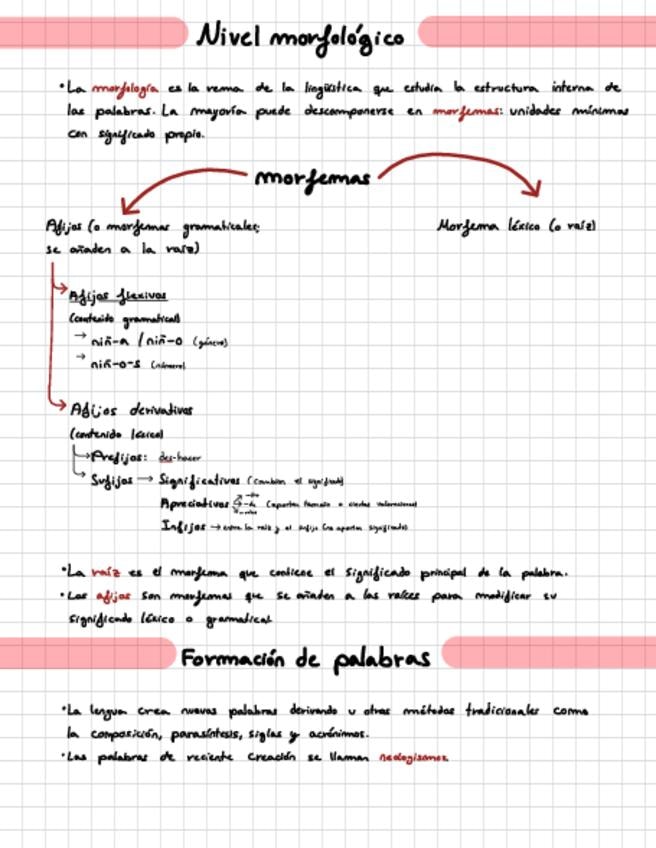 Nivel morfológico
• La morfología es la rema de la lingüística que estudia la estructura interna de
las palabras. La mayoría puede descomponerse en morfemas: unidades mínimas
con significado propio.
morfemas
Afijos (o morfemas gramaticales;
se añaden a la raíz)
Morfema léxico (o raíz)
Afijos flexivos
(contenido gramatical)
→ niñ-a / niñ-o (género)
→ niñ-o-s (número)
Afijos derivativos
(contenido léxico)
→ Prefijos: des-hacer
→ Sufijos → Significativos (cambian el significado)
Apreciativos (aportan tamaño o
Infijos → entre la raíz y el sufijo (no aportan significado)
• La raíz es el morfema que contiene el significado principal de la palabra.
• Los afijos son morfemas que se añaden a las raíces para modificar su
significado léxico o gramatical
Formación de palabras
• La lengua crea nuevas palabras derivando u otros métodos tradicionales como
la composición, parasíntesis, siglas y acrónimos.
• Las palabras de reciente creación se llaman neologismos.